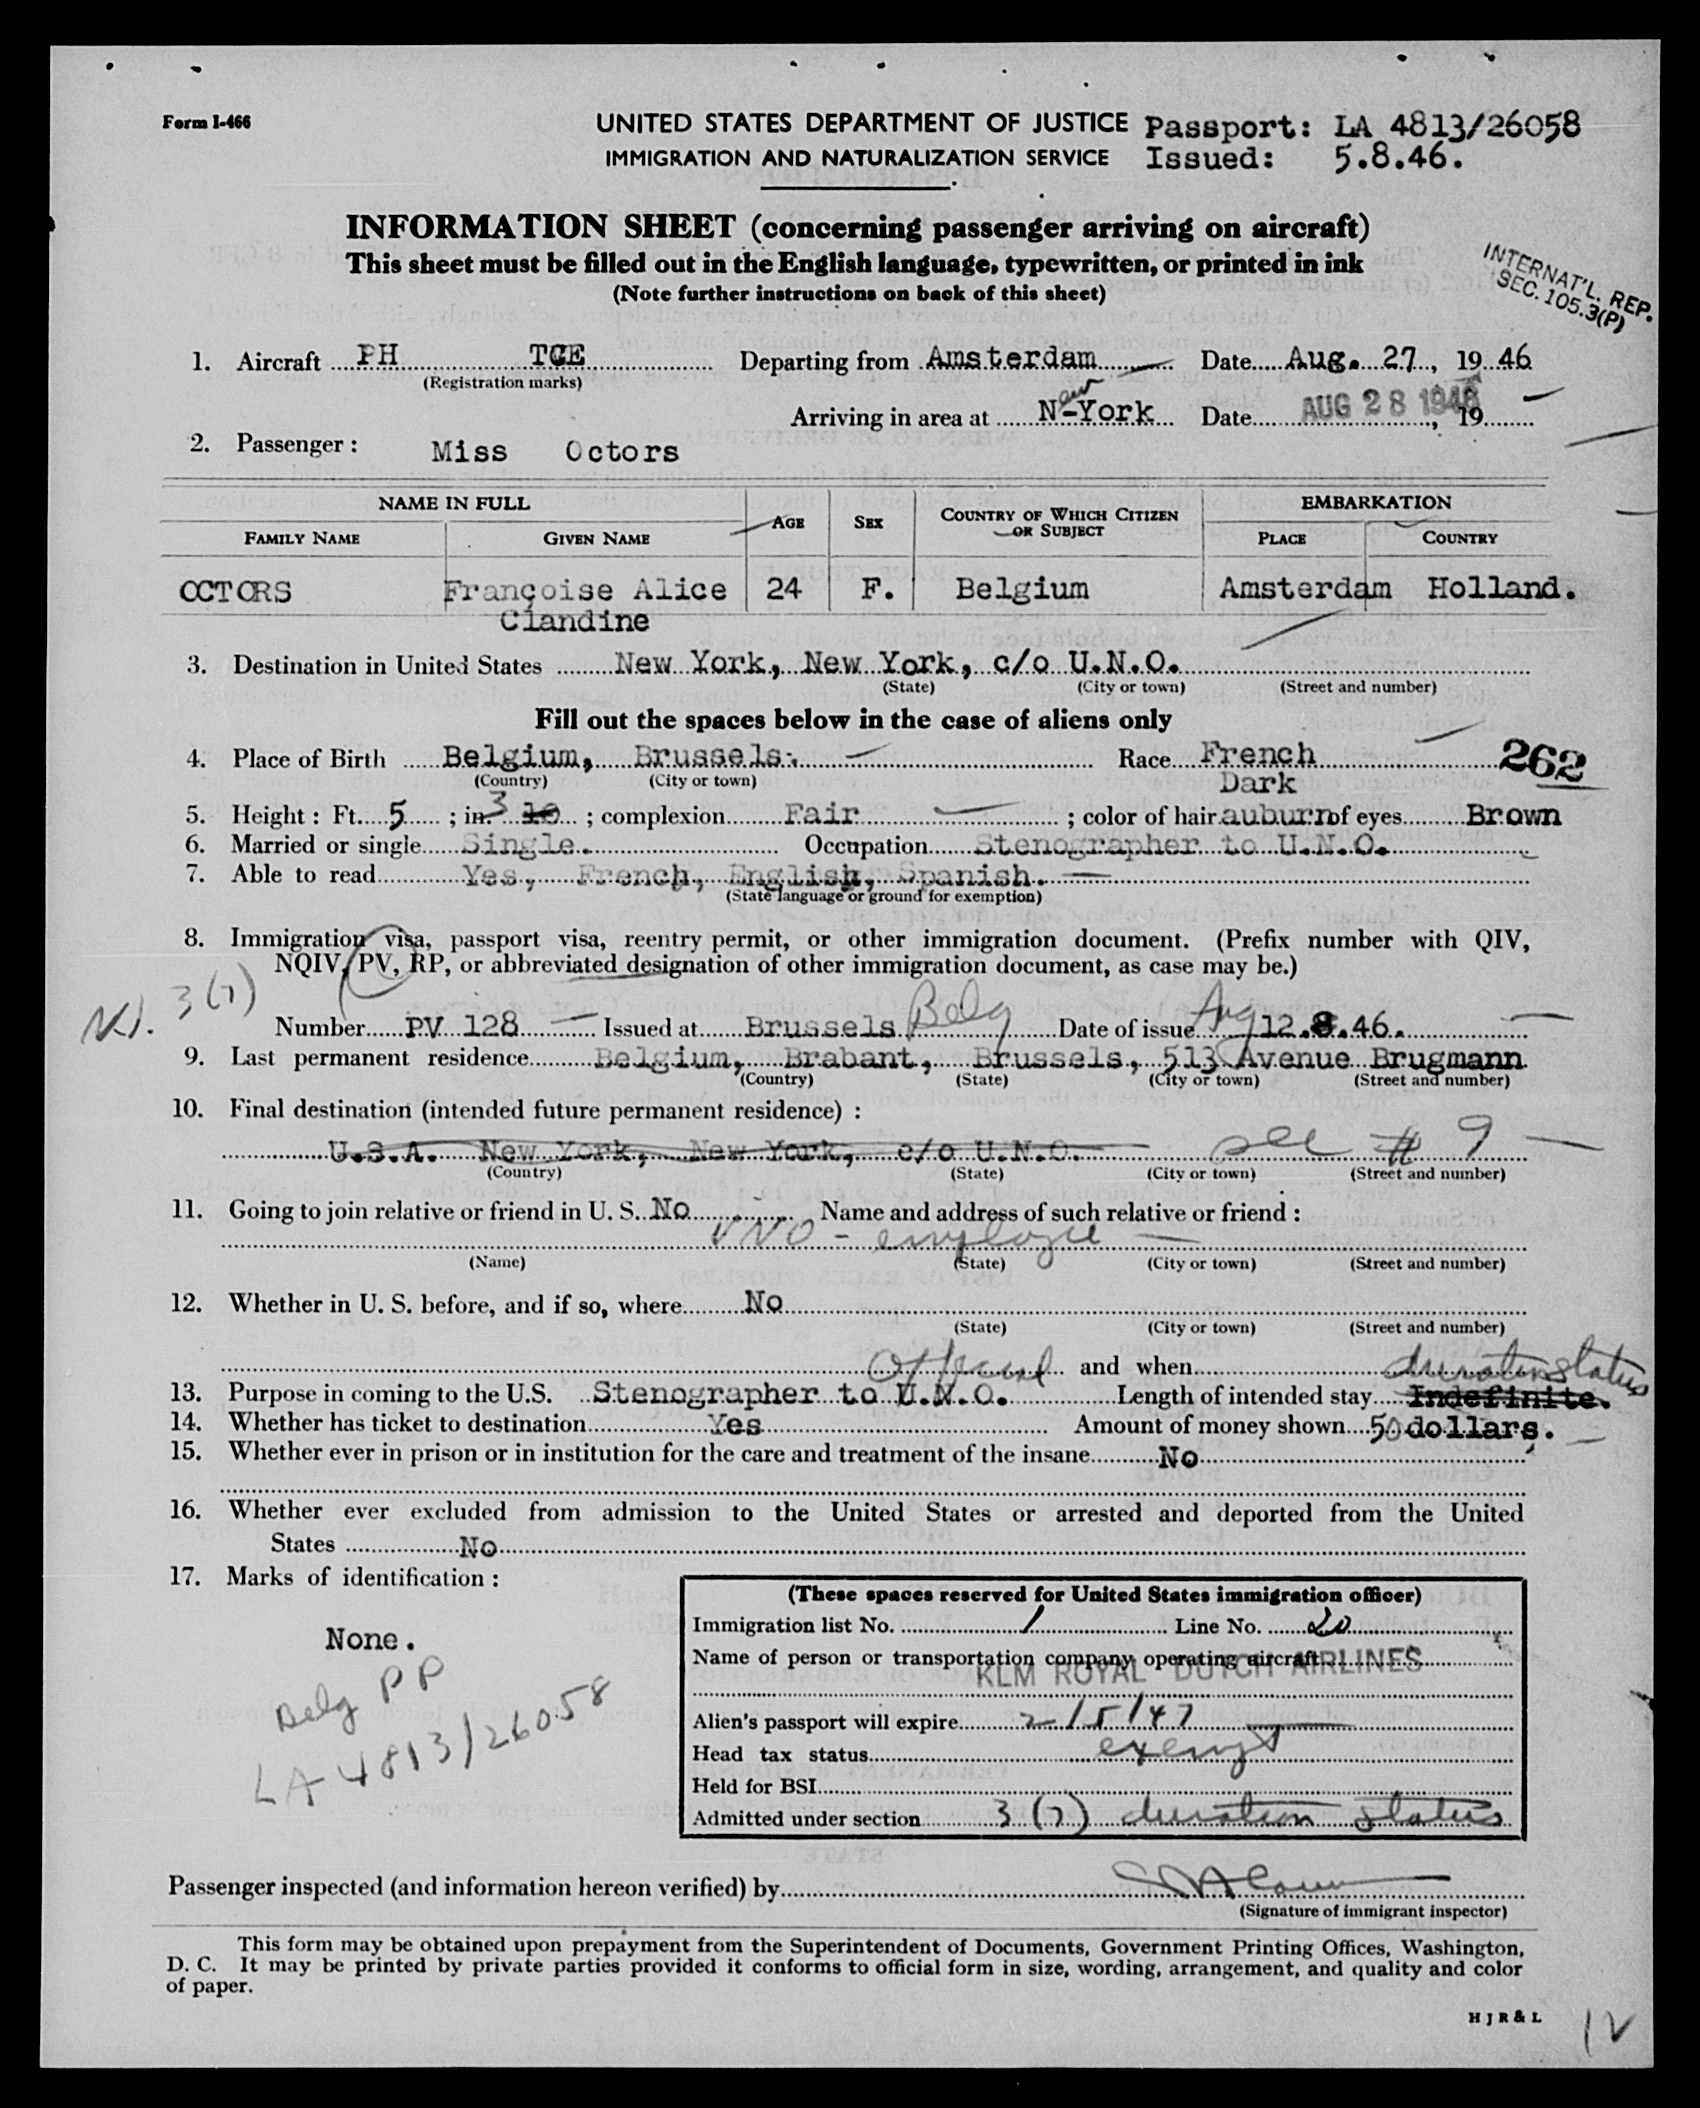 Form I-466
UNITED STATES DEPARTMENT OF JUSTICE Passport: LA 4813/26058
IMMIGRATION AND NATURALIZATION SERVICE Issued: 5.8.46.
INFORMATION SHEET (concerning passenger arriving on aircraft)
This sheet must be filled out in the English language, typewritten, or printed in ink
(Note further instructions on back of this sheet)
INTERNAT'L. REP.
SEC. 105.3(P)
1. Aircraft PH TCE Departing from Amsterdam Date Aug. 27, 19 46
(Registration marks)
Arriving in area at N-York ew Date AUG 28 1946, 19
2. Passenger: Miss Octors
NAME IN FULL AGE SEX COUNTRY OF WHICH CITIZEN OR SUBJECT EMBARKATION
FAMILY NAME GIVEN NAME PLACE COUNTRY
OCTORS Françoise Alice 24 F. Belgium Amsterdam Holland.
Clandine
3. Destination in United States New York, New York, c/o U.N.O.
(State) (City or town) (Street and number)
Fill out the spaces below in the case of aliens only
4. Place of Birth Belgium, Brussels. Race French 262
(Country) (City or town) Dark
5. Height: Ft. 5; in. 3 10; complexion Fair; color of hair auburn of eyes Brown
6. Married or single Single. Occupation Stenographer to U.N.O.
7. Able to read Yes, French, English, Spanish.
(State language or ground for exemption)
8. Immigration visa, passport visa, reentry permit, or other immigration document. (Prefix number with QIV,
NQIV, PV, RP, or abbreviated designation of other immigration document, as case may be.)
3(7)
Number PV 128 Issued at Brussels Belg Date of issue Aug 12.8.46.
9. Last permanent residence Belgium, Brabant, Brussels, 513 Avenue Brugmann
(Country) (State) (City or town) (Street and number)
10. Final destination (intended future permanent residence):
U.S.A. New York, New York, c/o U.N.O. see # 9
(Country) (State) (City or town) (Street and number)
11. Going to join relative or friend in U. S. No Name and address of such relative or friend:
UNO - employee
(Name) (State) (City or town) (Street and number)
12. Whether in U. S. before, and if so, where No
(State) (City or town) (Street and number)
Official and when duration status
13. Purpose in coming to the U.S. Stenographer to U.N.O. Length of intended stay Indefinite.
14. Whether has ticket to destination Yes Amount of money shown 50 dollars.
15. Whether ever in prison or in institution for the care and treatment of the insane No
16. Whether ever excluded from admission to the United States or arrested and deported from the United
States No
17. Marks of identification:
None.
Belg PP
LA 4813/26058
(These spaces reserved for United States immigration officer)
Immigration list No. 1 Line No. 20
Name of person or transportation company operating aircraft
KLM ROYAL DUTCH AIRLINES
Alien's passport will expire 2/5/47
Head tax status exempt
Held for BSI
Admitted under section 3 (7) duration status
Passenger inspected (and information hereon verified) by
(Signature of immigrant inspector)
This form may be obtained upon prepayment from the Superintendent of Documents, Government Printing Offices, Washington,
D. C. It may be printed by private parties provided it conforms to official form in size, wording, arrangement, and quality and color
of paper.
H J R & L